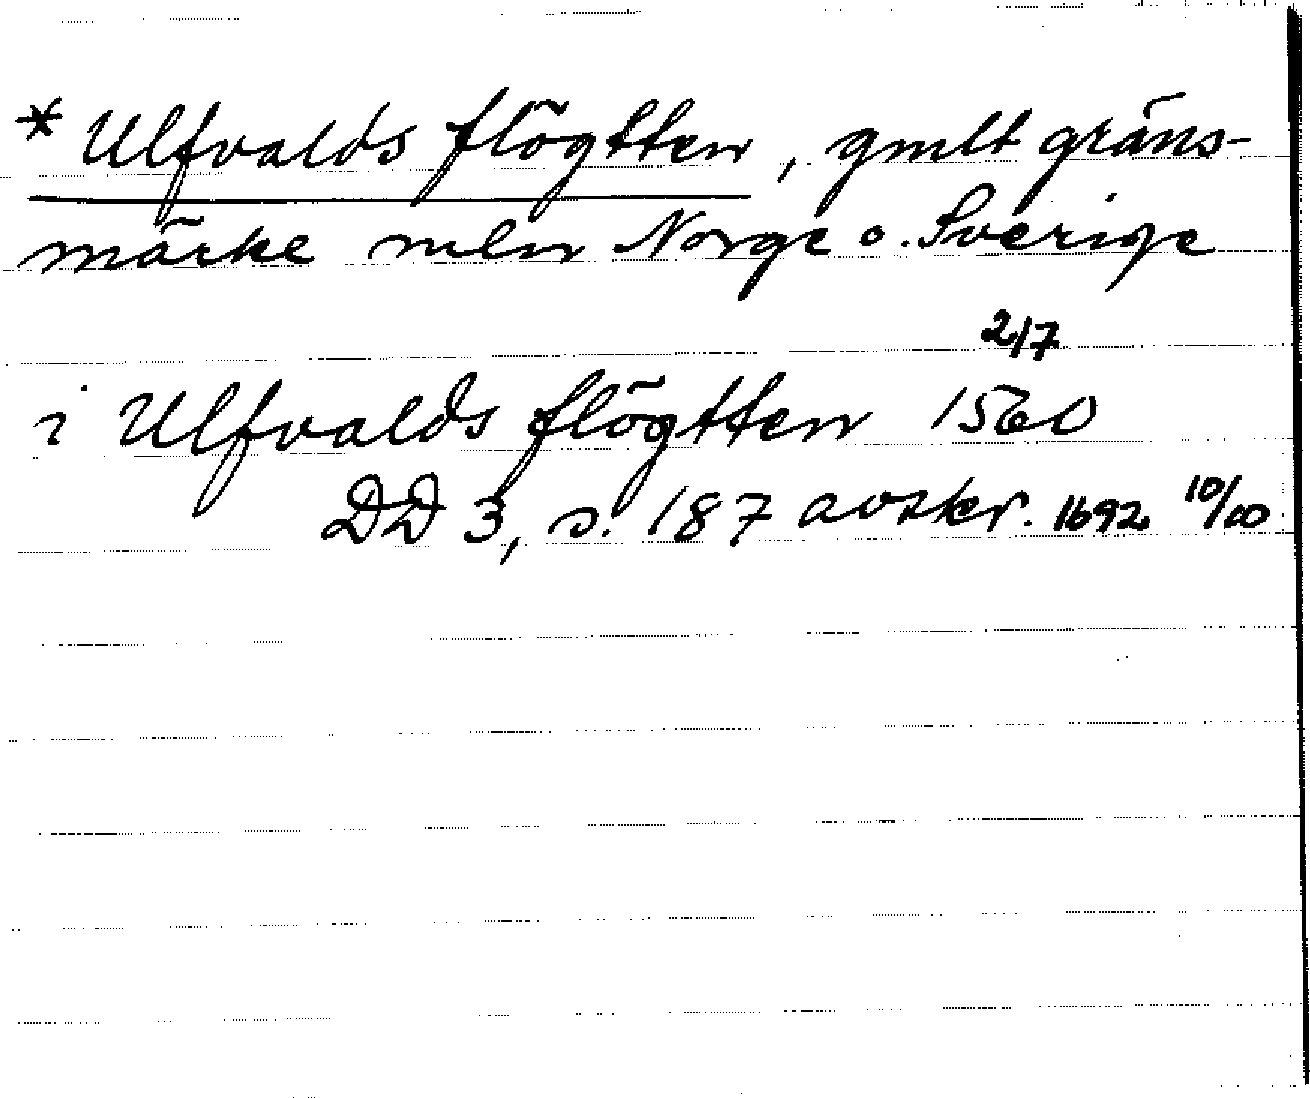 * Ulfvalds flögtten, gmlt gräns-
märke mln Norge o. Sverige
2/7
i Ulfvalds flögtten 1560
DD 3, s. 187 avskr. 1692 10/10